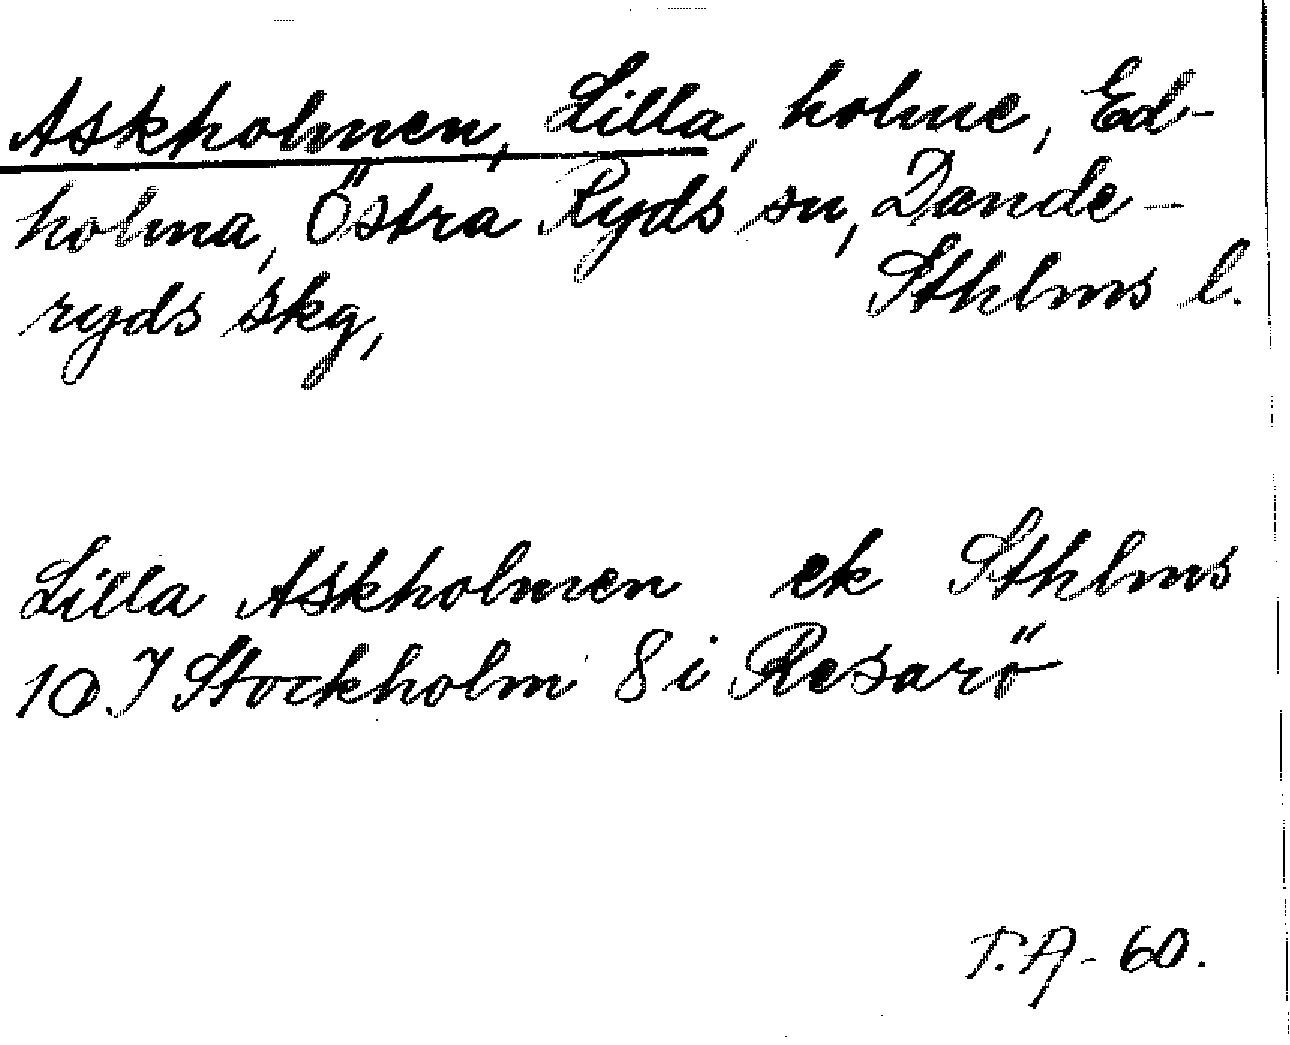 Askholmen, Lilla, holme, Ed-
holma, Östra Ryds sn, Dande-
ryds skg, Sthlms l.
Lilla Askholmen ek Sthlms
10 I Stockholm 8 i Resarö
T.A-60.